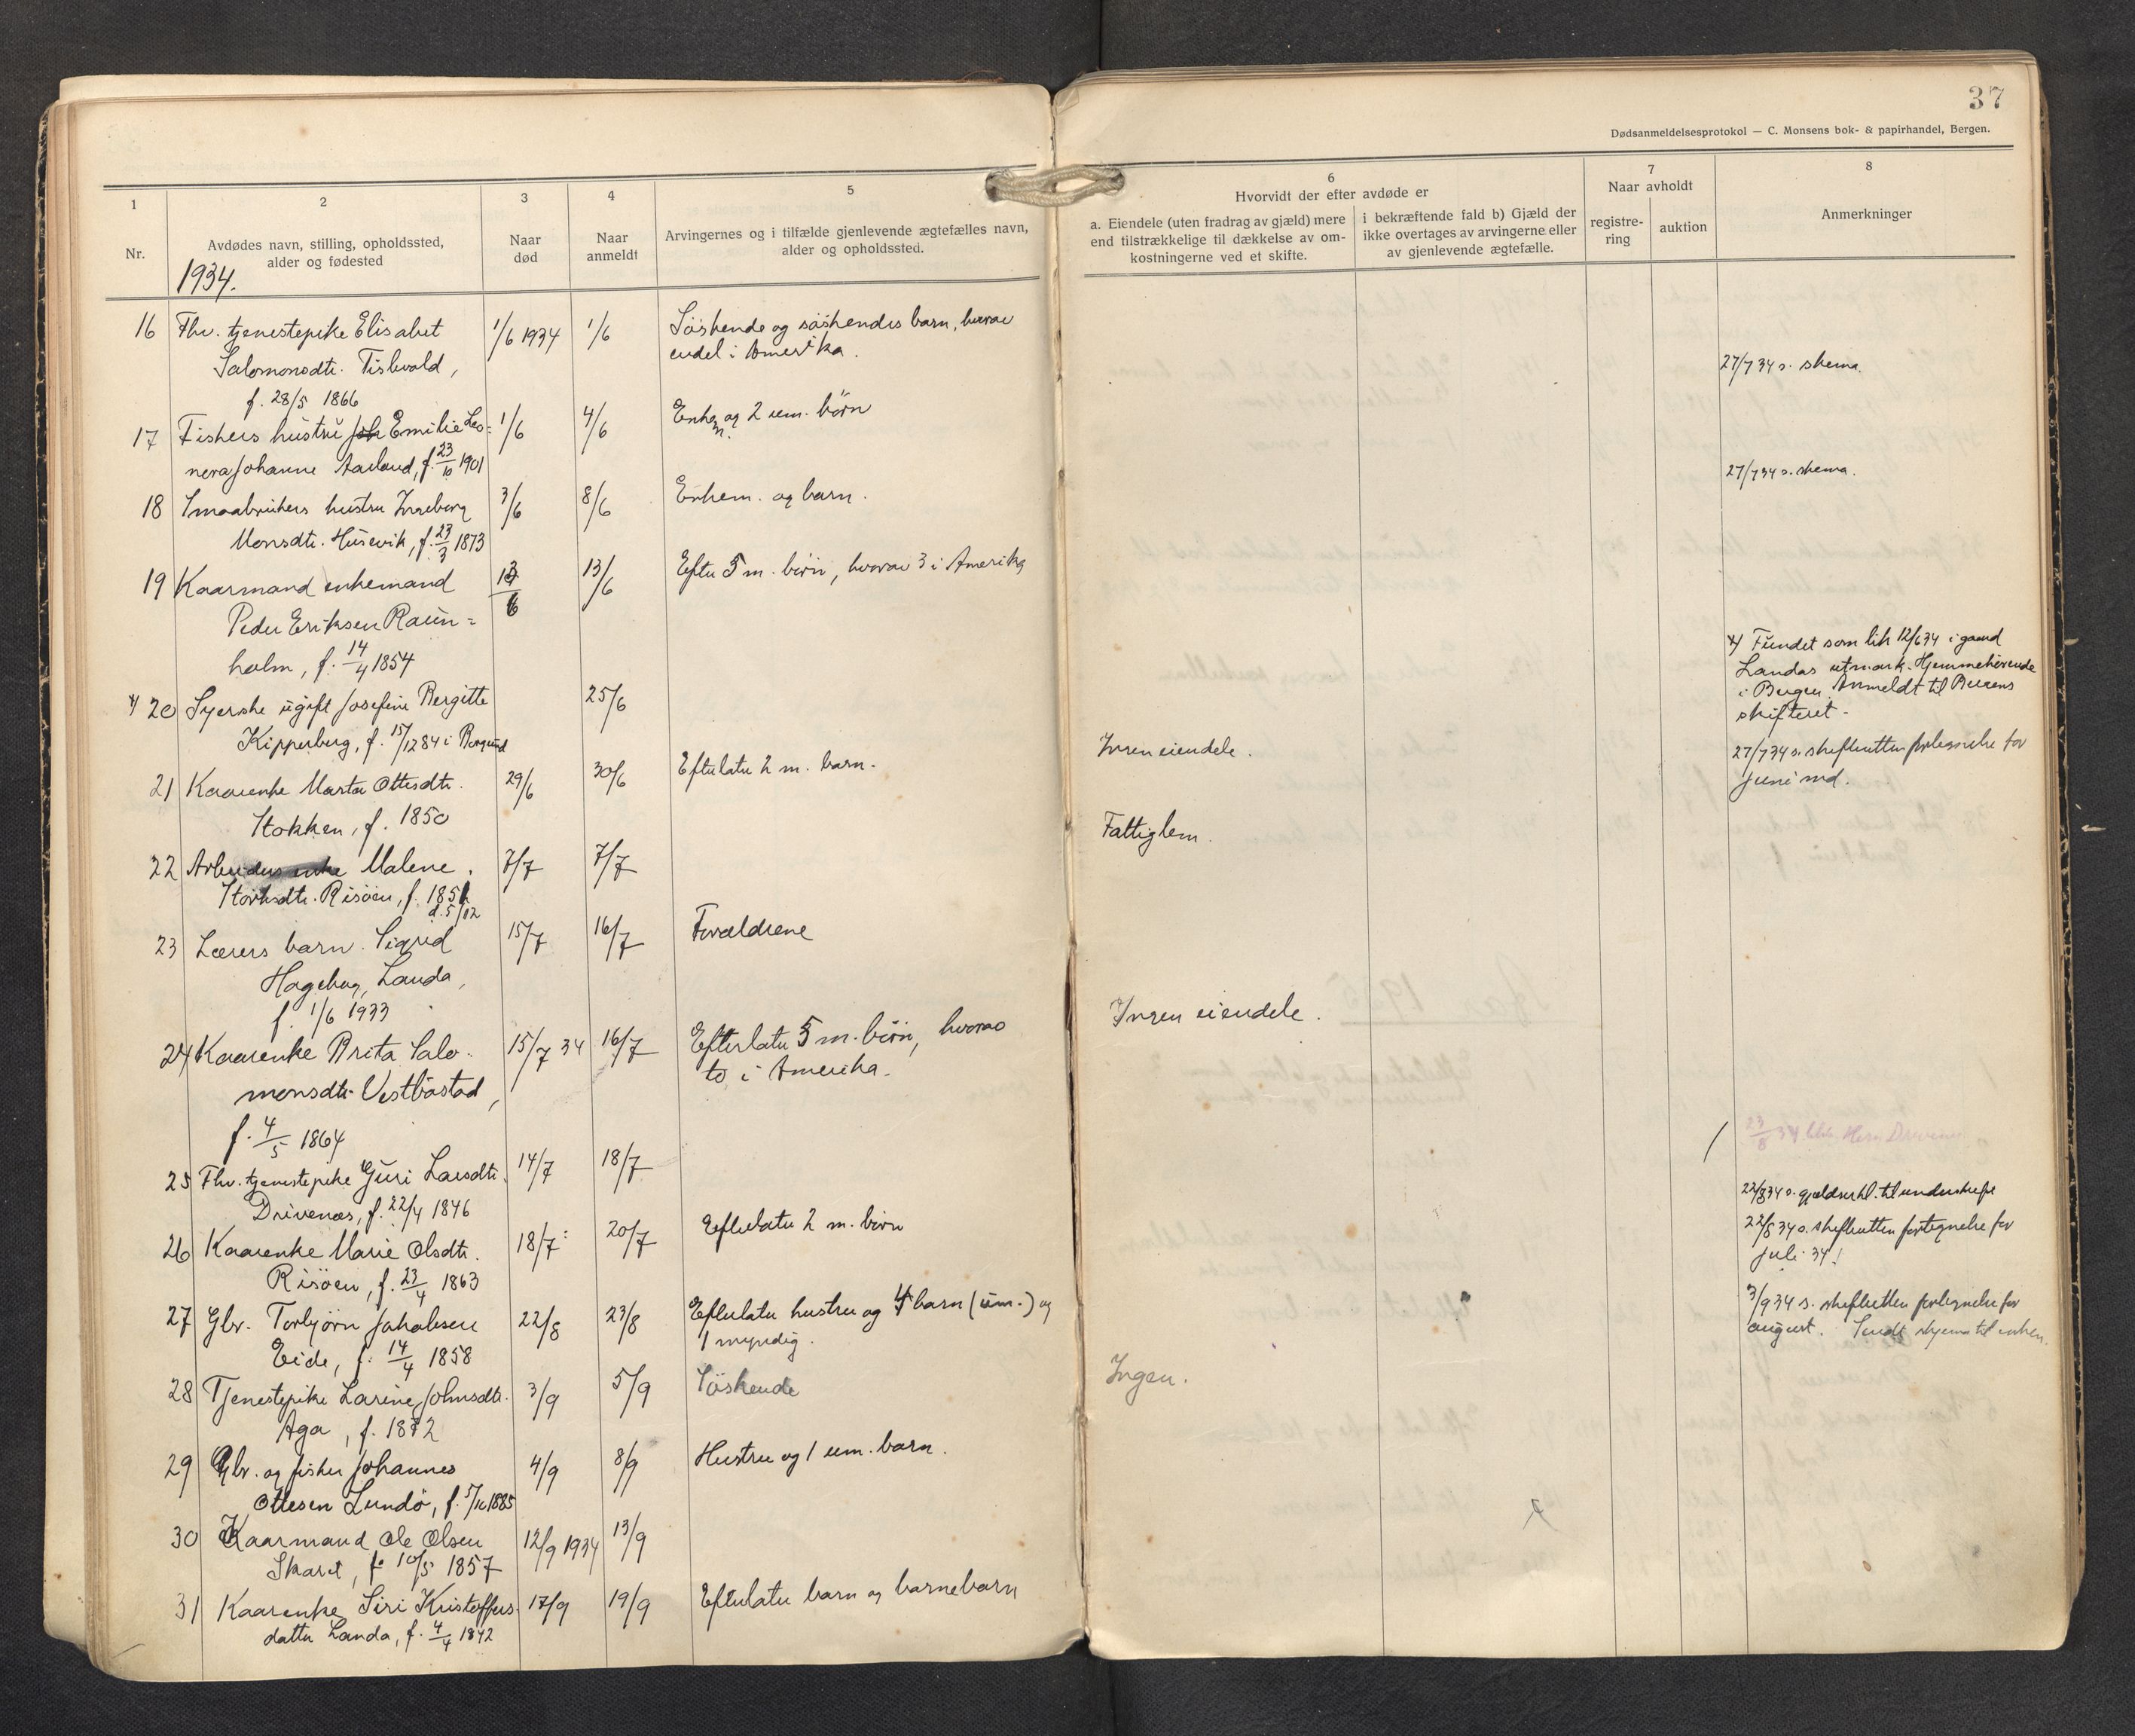 37
Dødsanmeldelsesprotokol — C. Monsens bok- & papirhandel, Bergen.
1
Nr.
2
Avdødes navn, stilling, opholdssted,
alder og fødested
3
Naar
død
4
Naar
anmeldt
5
Arvingernes og i tilfælde gjenlevende ægtefælles navn,
alder og opholdssted.
6
Hvorvidt der efter avdøde er
a. Eiendele (uten fradrag av gjæld) mere
end tilstrækkelige til dækkelse av om-
kostningerne ved et skifte.
i bekræftende fald b) Gjæld der
ikke overtages av arvingerne eller
av gjenlevende ægtefælle.
7
Naar avholdt
registre-
ring
auktion
8
Anmerkninger
1934.
16 Fhv. tjenestepike Elisabet 1/6 1934 1/6 Söskende og söskendes barn, hvorav
Salomonsdtr. Tislevold, endel i Amerika.
f. 28/5 1866
27/7 34 s. skema.
17 Fiskers hustru Emilie Leo= 1/6 4/6 Enkem. og 2 um. börn
nora Johanne Aarland, f. 23/10 1901
27/7 34 s. skema.
18 Smaabrukers hustru Ingeborg 3/6 8/6 Enkem. og barn.
Monsdtr. Husevik, f. 23/3 1873
19 Kaarmand enkemand 13/6 Efterl. 5 m. börn, hvorav 3 i Amerika
Peder Eriksen Raun=
holm, f. 14/4 1854
20 Syerske ugift Josefine Bergitte 25/6
Kipperberg, f. 15/12 84 i Borgund
Fundet som lik 12/6 34 i gaard
Landas utmark. Hjemmehörende
i Bergen. Anmeldt til Bergens
skifteret.
21 Kaarenke Marta Ottesdtr. 29/6 30/6 Efterlater 2 m. barn. Ingen eiendele.
Stokken, f. 1850
27/7 34 s. skefteretten fortegnelse for
juni md.
22 Arbeiders enke Malene. 7/7 7/7 Fattiglem.
Risöen, f.
23 Lærers barn Sigrid 15/7 16/7 Forældrene
Hagebug, Landa,
f. 1/6 1933
24 Kaarenke Brita Salo- 15/7 34 16/7 Efterlater 5 m. börn, hvorav Ingen eiendele.
monsdtr. Vestböstad, to i Amerika.
f. 4/5 1864
25 Fhv. tjenestepike Guri Larsdtr. 14/7 18/7
Drivenæs, f. 22/4 1846
23/8 34
22/8 34 s. til underskrift
26 Kaarenke Marie Olsdtr. 18/7 20/7 Efterlater 2 m. börn
Risöen, f. 23/4 1863
22/8 34 s. skefteretten fortegnelse for
juli 34!
27 Gbr. Torbjörn Jakobsen 22/8 23/8 Efterlater hustru og 4 barn (um.) og
Eide, f. 14/4 1858 1 myndig.
3/9 34 s. skefteretten fortegnelse for
august. Sendt skjema til enken.
28 Tjenestepike Larine Johnsdtr. 3/9 5/9 Söskende Ingen.
Aga, f. 1872
29 Gbr. og fisker Johannes 4/9 8/9 Hustru og 1 um. barn.
Ottesen Lundö, f. 1885
30 Kaarmand Ole Olsen 12/9 1934 13/9
Skaret, f. 10/5 1857
31 Kaarenke Siri Kristoffers- 17/9 19/9 Efterlater barn og barnebarn
datter Landa, f. 4/4 1842